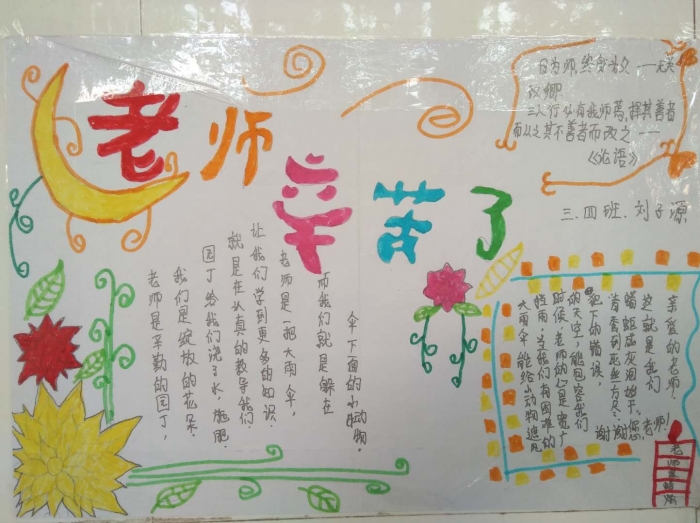 老师辛苦了
日为师,终身为父——关
汉卿
三人行,必有我师焉,择其善者
而从之其不善者而改之——
《论语》
三.四班.刘子源
老师是辛勤的园丁,
我们是绽放的花朵.
园丁给我们浇了水,施肥.
就是在认真的教导我们.
让我们学到更多的知识.
老师是一把大雨伞,
而我们就是躲在
伞下面的小动物,
大雨伞能给小动物遮风
挡雨,当我们有困难的
时候,老师的心是宽广
的天空,能包容我们
犯下的错误,
蚕到死丝方尽,
蜡炬成灰泪始干.
这就是我们
亲爱的老师,
谢谢您,老师!